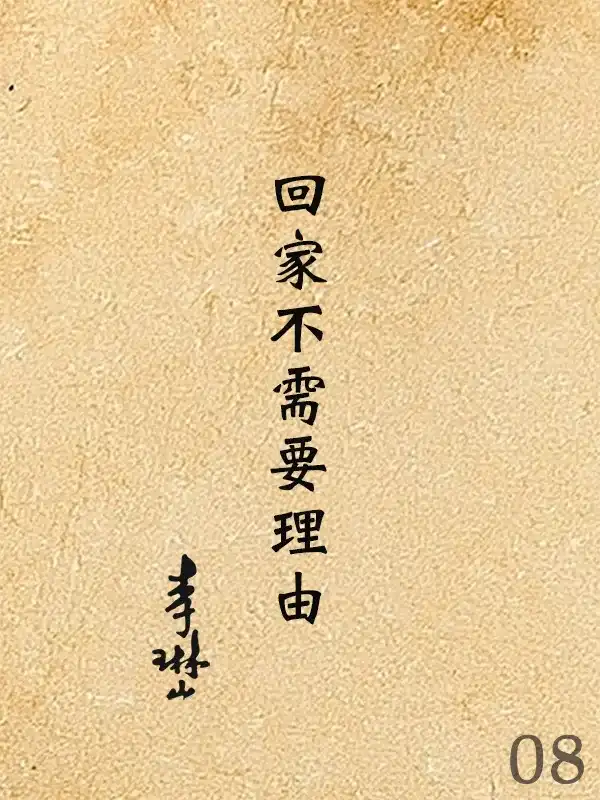 回家不需要理由
李琳山
08